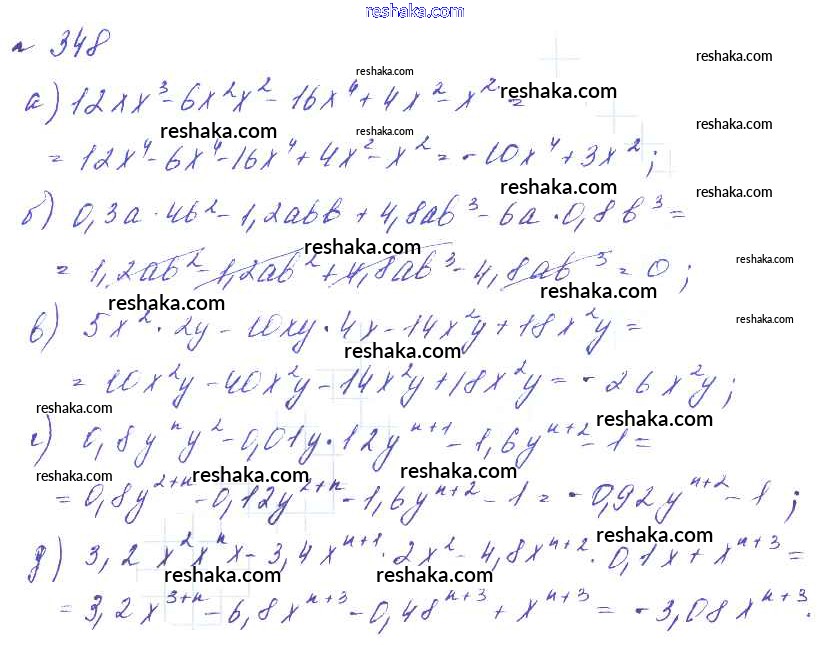 reshaka.com
№ 348
reshaka.com
reshaka.com
а) 12xx³ - 6x²x² - 16x⁴ + 4x² - x² =
reshaka.com
reshaka.com
reshaka.com
reshaka.com
= 12x⁴ - 6x⁴ - 16x⁴ + 4x² - x² = -10x⁴ + 3x²;
reshaka.com
reshaka.com
б) 0,3a · 4b² - 1,2abb + 4,8ab³ - 6a · 0,8b³ =
reshaka.com
reshaka.com
= 1,2ab² - 1,2ab² + 4,8ab³ - 4,8ab³ = 0;
reshaka.com
reshaka.com
reshaka.com
в) 5x² · 2y - 10xy · 4x - 14x²y + 18x²y =
reshaka.com
= 10x²y - 40x²y - 14x²y + 18x²y = -26x²y;
reshaka.com
reshaka.com
г) 0,8yⁿy² - 0,01y · 12yⁿ⁺¹ - 1,6yⁿ⁺² - 1 =
reshaka.com
reshaka.com
reshaka.com
= 0,8y²⁺ⁿ - 0,12y²⁺ⁿ - 1,6yⁿ⁺² - 1 = -0,92yⁿ⁺² - 1;
reshaka.com
д) 3,2x²xⁿx - 3,4xⁿ⁺¹ · 2x² - 4,8xⁿ⁺² · 0,1x + xⁿ⁺³ =
reshaka.com
reshaka.com
reshaka.com
= 3,2x³⁺ⁿ - 6,8xⁿ⁺³ - 0,48ⁿ⁺³ + xⁿ⁺³ = -3,08xⁿ⁺³.